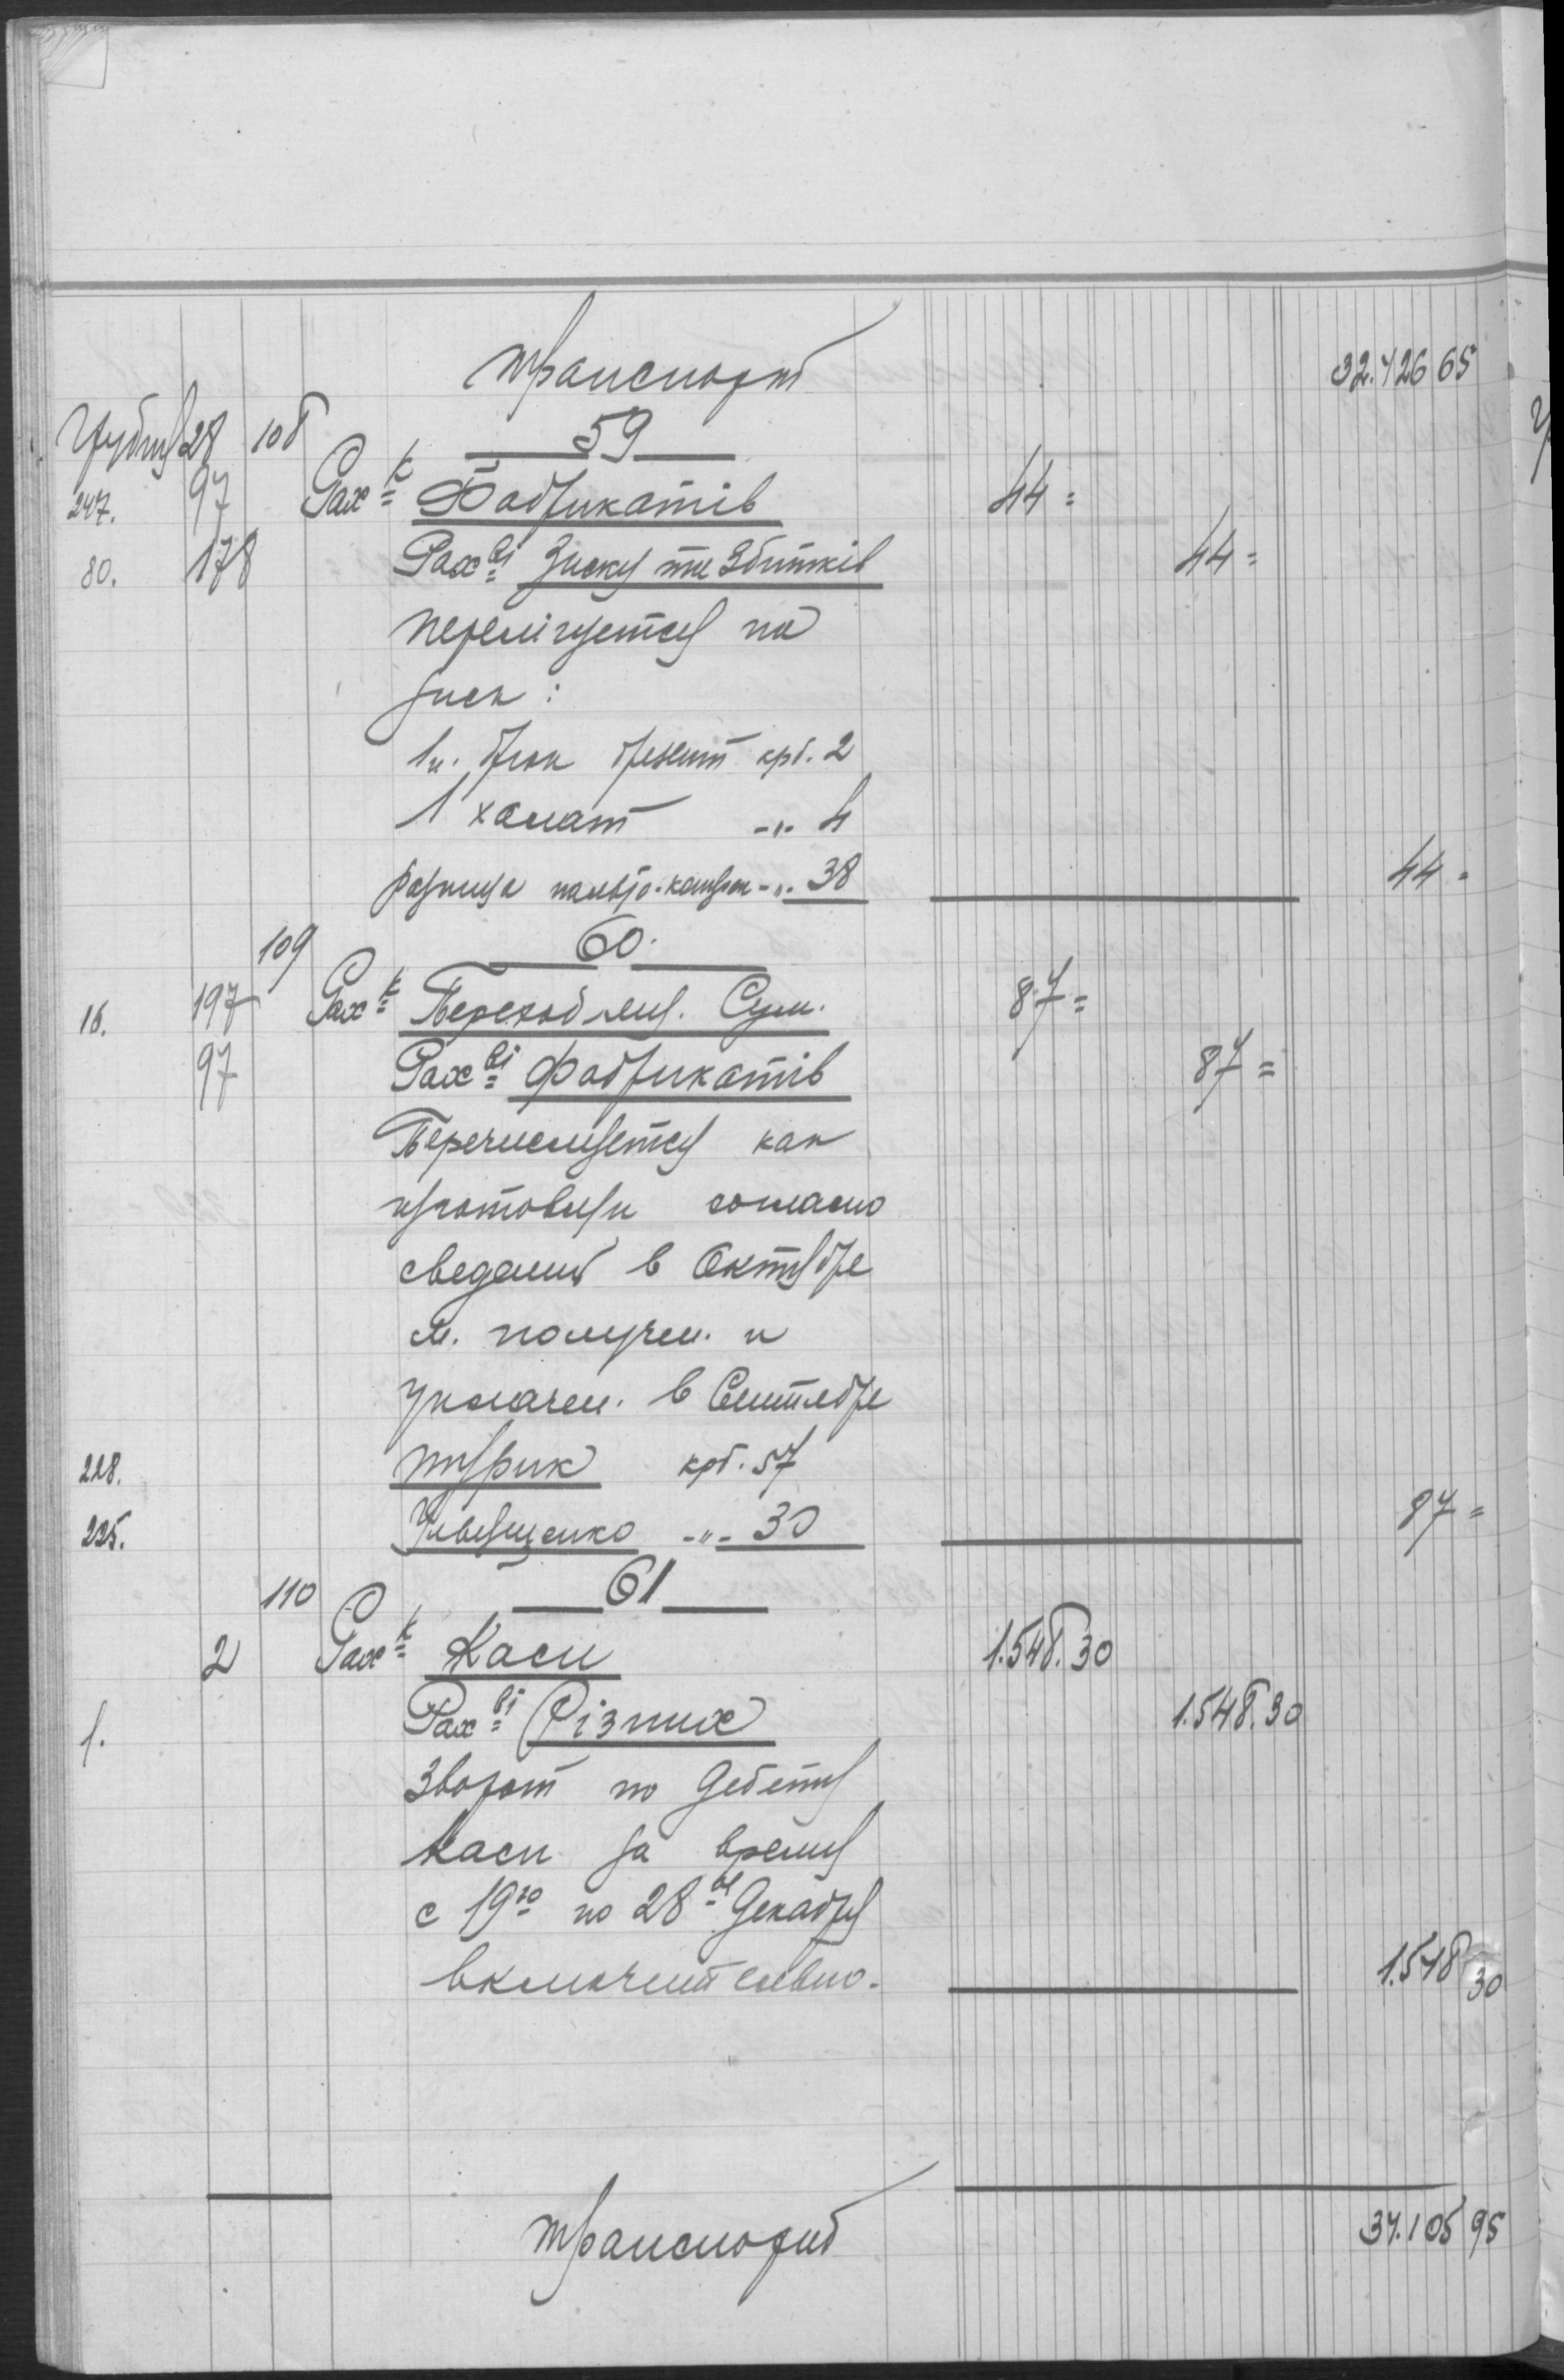 Транспорт 32.426 65
Грудня 28 108 59
247. 97 Рах-к Фабрикатів 44=
80. 178 Рах-ві Зиску та Збитків 44=
перелічуется на
зиск:
1 п. брюк брезент крб. 2
1 халат -"- 4
разница пальто-кацов -"- 38 44=
109 60.
16. 197 Рах-к Переходящ. Сум. 87=
97 Рах-ві Фабрикатів 87=
Перечисляется как
изготовлен согласно
сведений в Октябре
м. получен. и
уплачен. в Сентябре
228. крб. 57
225. -"- 30 87=
110 61
2 Рах-к Каси 1.548.30
1. Рах-ві Різних 1.548.30
Зворот по Дебету
Каси за время
с 19го по 28ое Декабря
включительно. 1.548 30
Транспорт 34.105 95